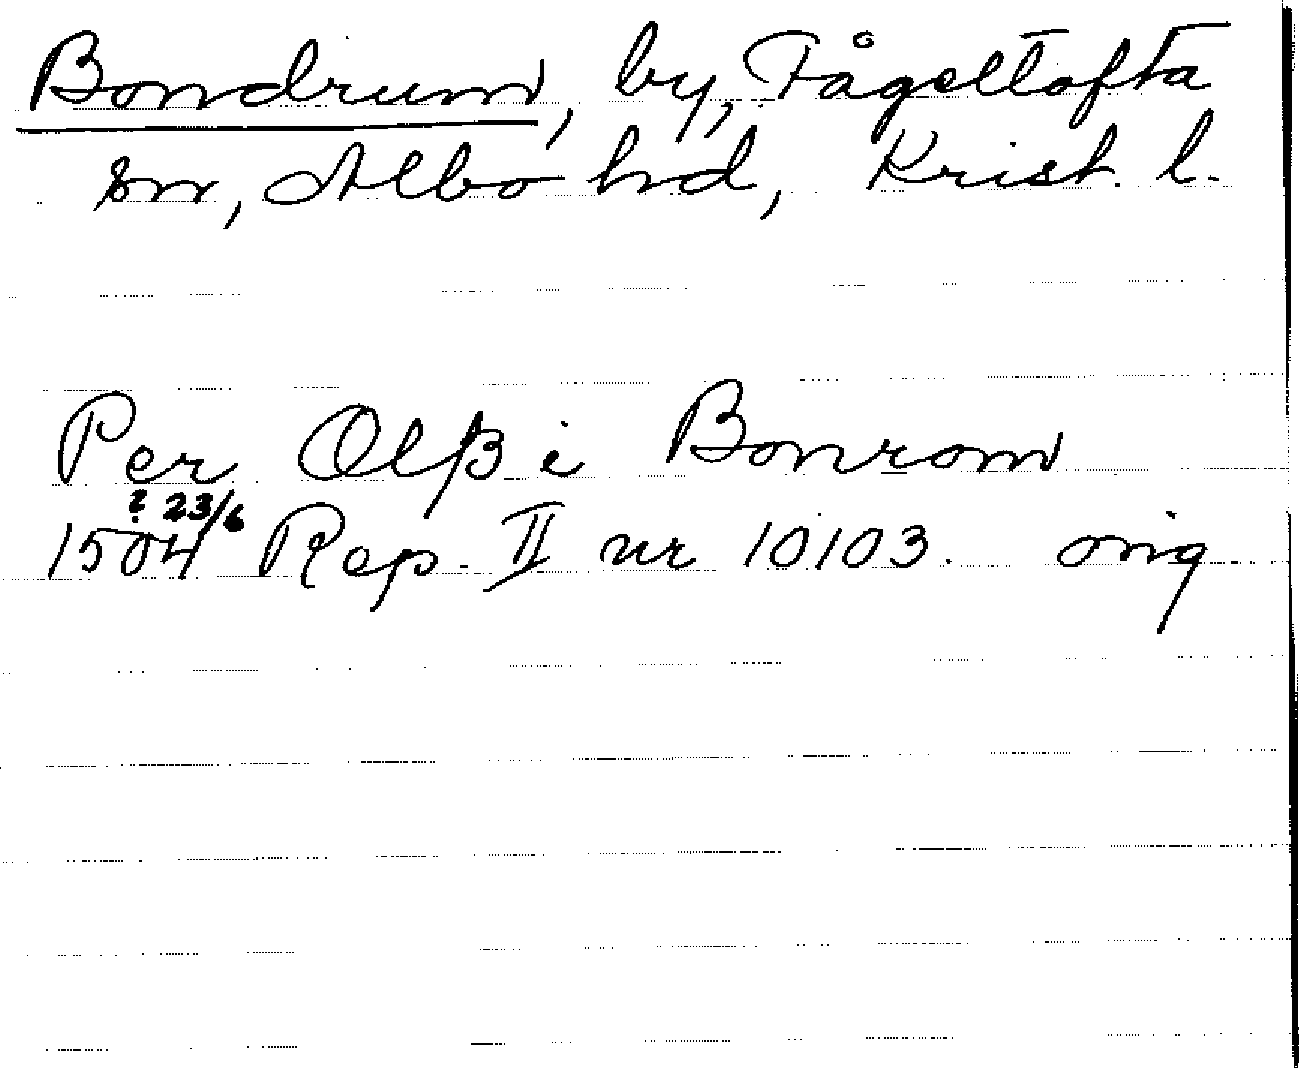 Bondrum, by, Fågeltofta
sn, Albo hd, Krist. l.
Per Olβ i Bonrom
? 23/6
1504 Rep. II nr 10103. orig